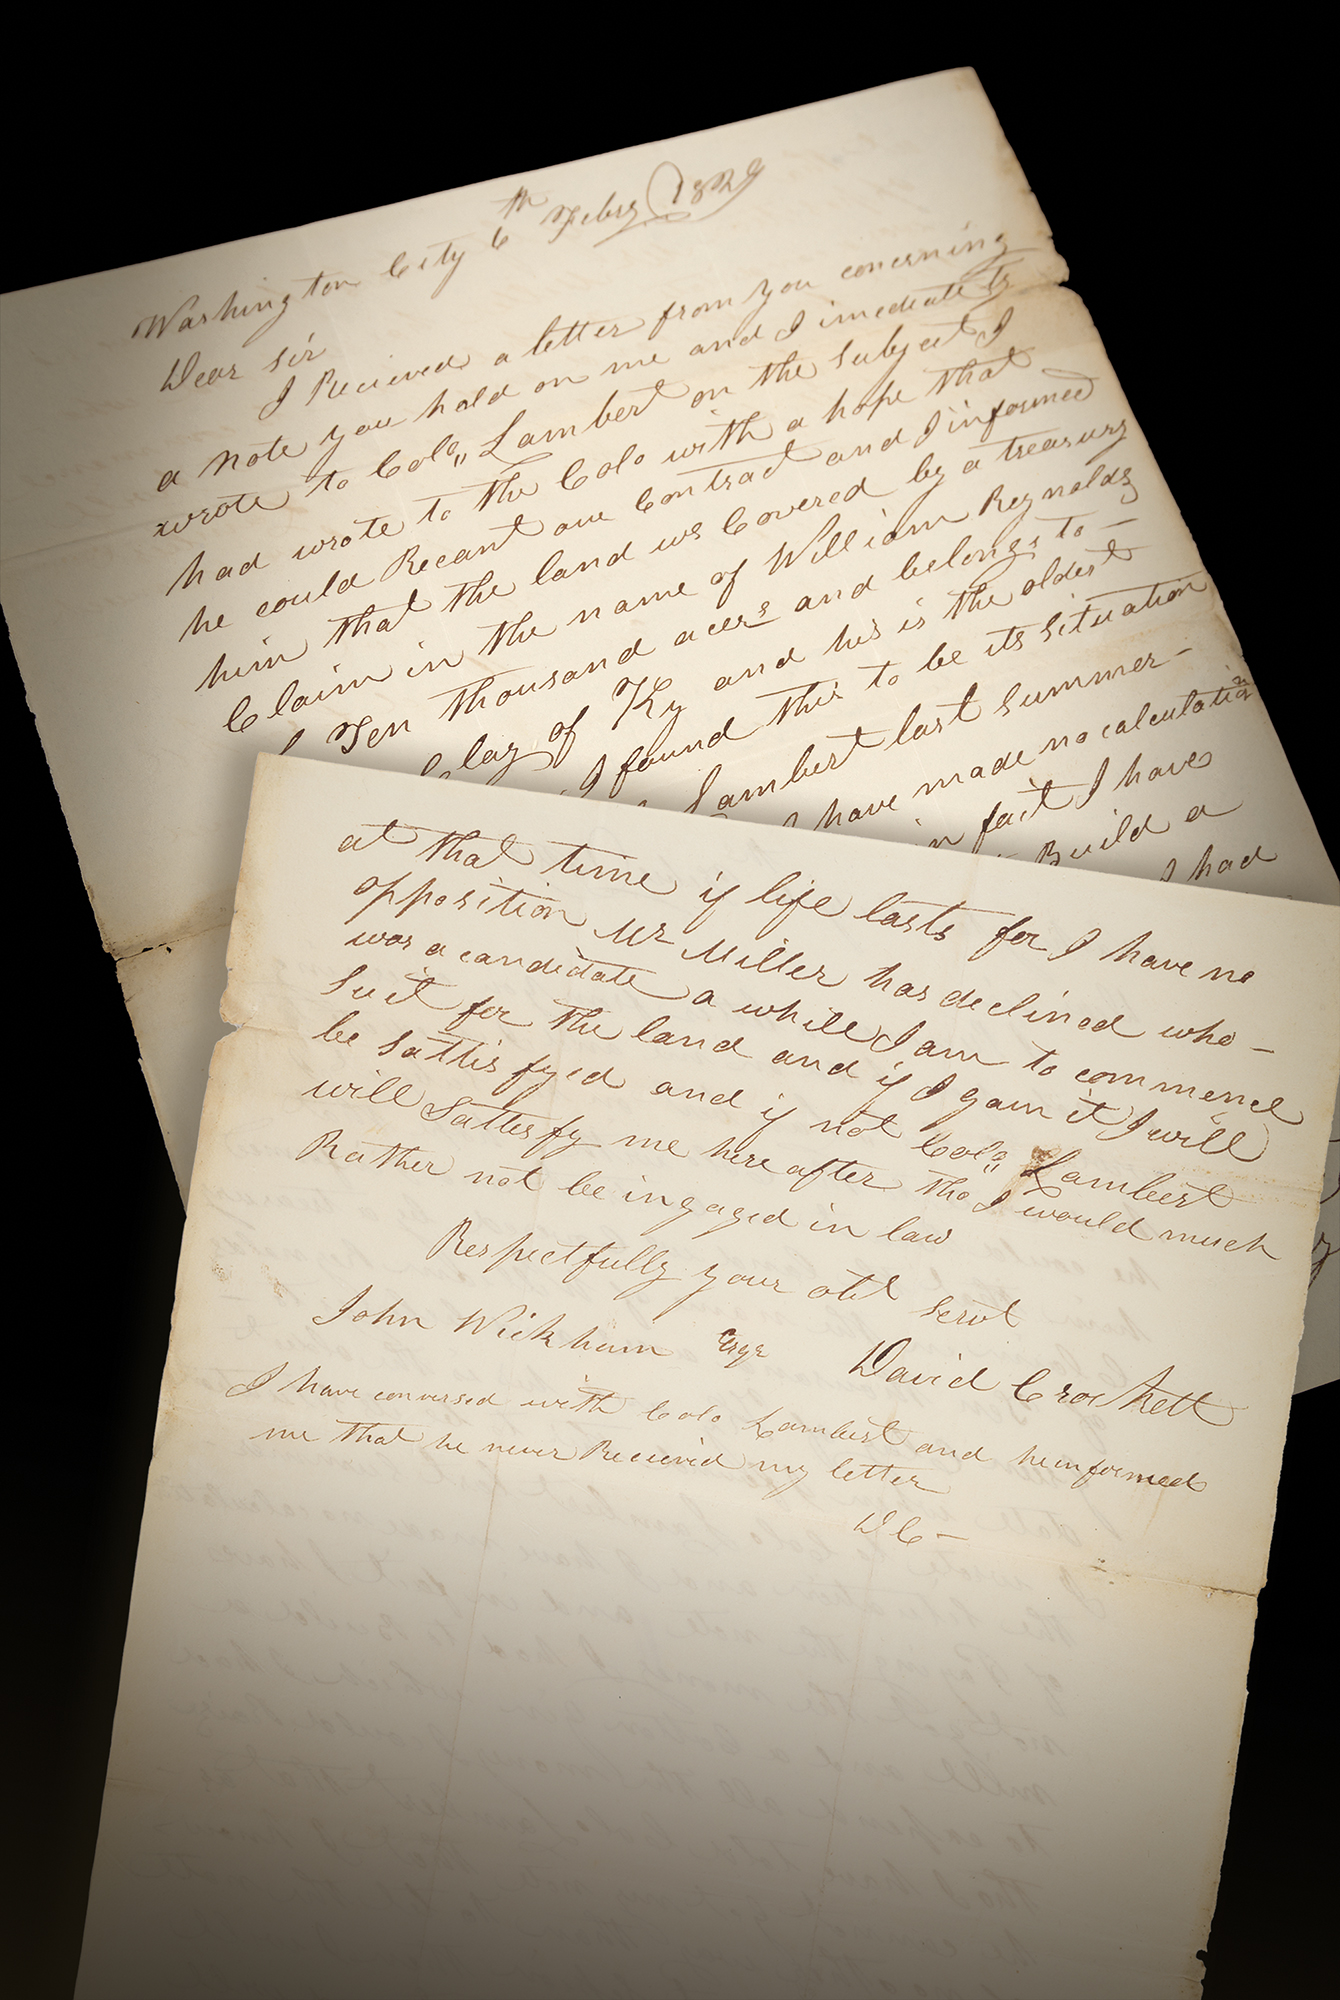 Washington City 6th Febry 1829
Dear Sir
I Recieved a letter from you concerning
a note you hold on me and I imediately
wrote to Colo Lambert on the subject I
had wrote to the Colo with a hope that
he could Recant our Contract and I informed
him that the land ws Covered by a treasury
Claim in the name of William Reynolds
Ten thousand acers and belongs to –
Clay of Ky and his is the oldest
I found this to be its situation
Lambert last summer –
I have made no calculation
in fact I have
Build a
I had
at that time if life lasts for I have no
opposition Mr Miller has declined who –
was a candidate a while I am to commence
suit for the land and if I gain it I will
be sattisfyed and if not Colo Lambert
will Sattesfy me here after tho I would much
Rather not be ingaged in law
Respectfully your obt servt
John Wickham Esqr David Crockett
I have conversed with Colo Lambert and he informed
me that he never Recieved my letter
D C –